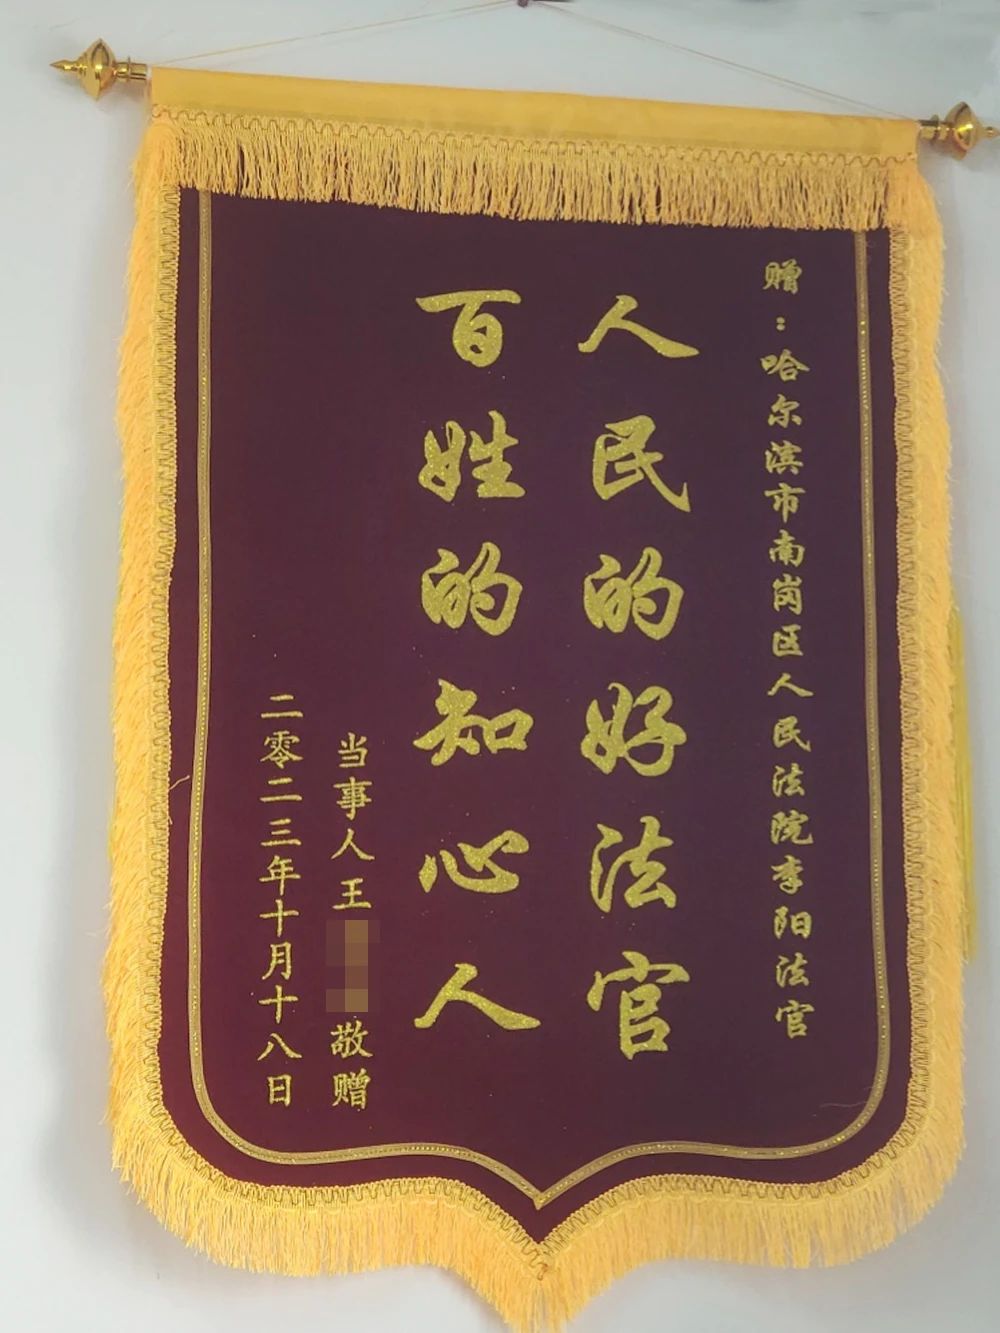 赠：哈尔滨市南岗区人民法院李阳法官
人民的好法官
百姓的知心人
当事人王
敬赠
二零二三年十月十八日